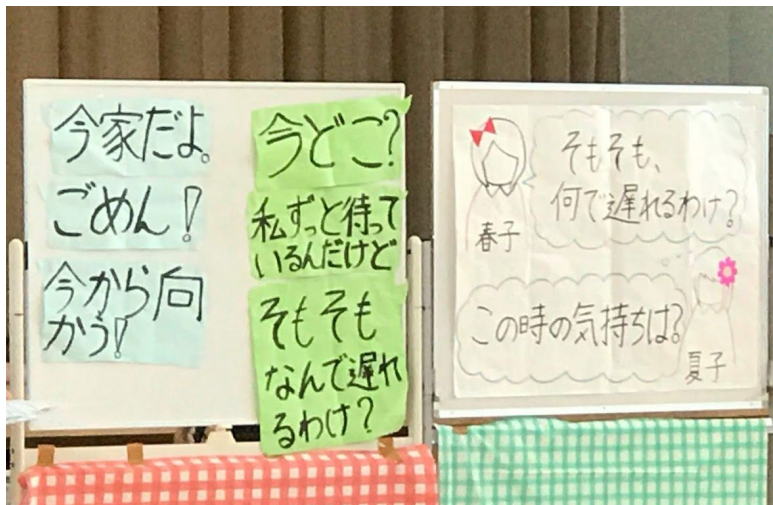 今家だよ。
ごめん!
今から向
かう!
今どこ?
私ずっと待って
いるんだけど
そもそも
なんで遅れ
るわけ?
そもそも、
何で遅れるわけ?
春子
この時の気持ちは?
夏子